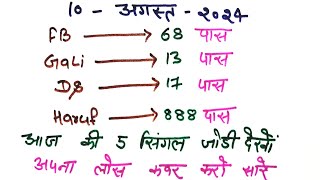 10 - अगस्त - 2024
FB → 68 पास
GaLi → 13 पास
DS → 17 पास
Haruf → 888 पास
आज की 5 सिंगल जोडी देखों
अपना लोस कवर करो सारे